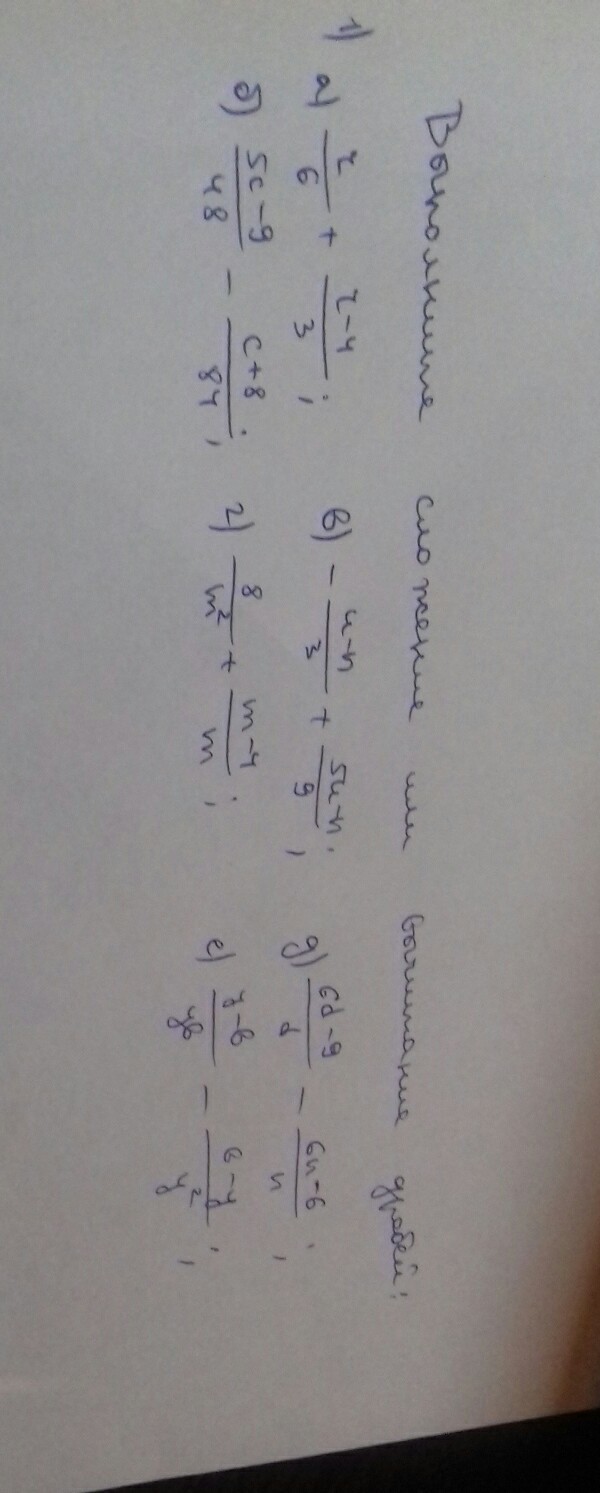 Выполните сложение или вычитание дробей:
1) а) z/6 + (z-4)/3; в) - (u-n)/3 + (5u-n)/9; д) (6d-9)/d - (6n-6)/n;
б) (5c-9)/48 - (c+8)/84; г) 8/m² + (m-4)/m; е) (y-b)/yb - (b-y)/y²;